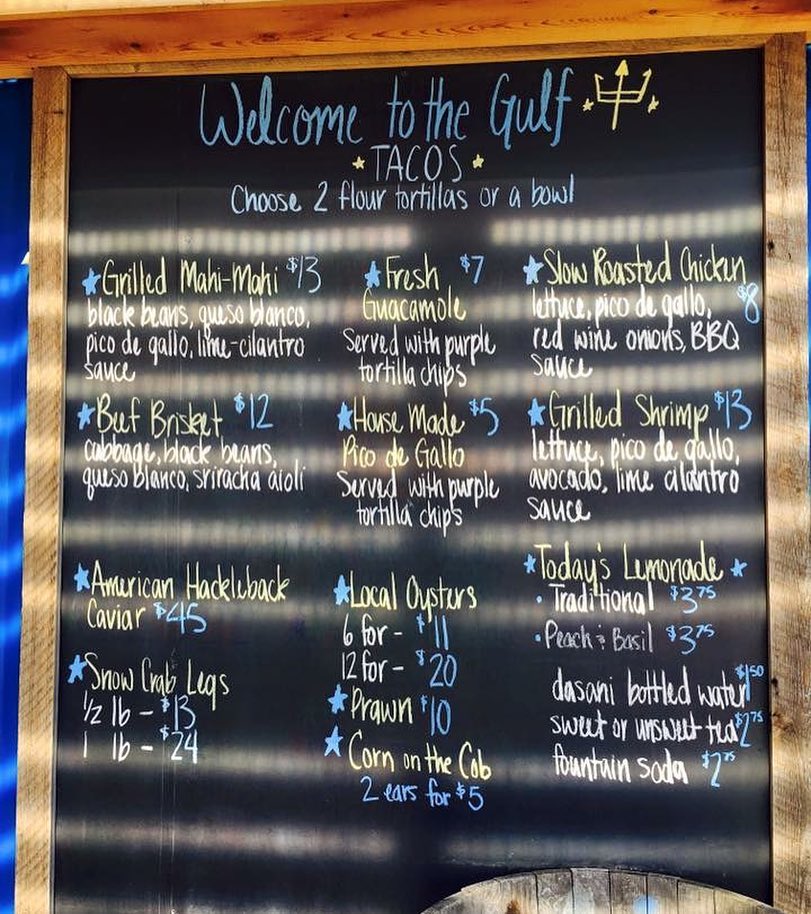 Welcome to the Gulf
TACOS
Choose 2 flour tortillas or a bowl
Grilled Mahi-Mahi $13
black beans, queso blanco,
pico de gallo, lime-cilantro
sauce
Beef Brisket $12
cabbage, black beans,
queso blanco, sriracha aioli
American Hackleback
Caviar $45
Snow Crab Legs
1/2 lb - $13
1 lb - $24
Fresh $7
Guacamole
Served with purple
tortilla chips
House Made $5
Pico de Gallo
Served with purple
tortilla chips
Local Oysters
6 for - $11
12 for - $20
Prawn $10
Corn on the Cob
2 ears for $5
Slow Roasted Chicken
$8
lettuce, pico de gallo,
red wine onions, BBQ
sauce
Grilled Shrimp $13
lettuce, pico de gallo,
avocado, lime cilantro
sauce
Today's Lemonade
• Traditional $3.75
• Peach & Basil $3.75
dasani bottled water $1.50
sweet or unsweet tea $2.75
fountain soda $2.75